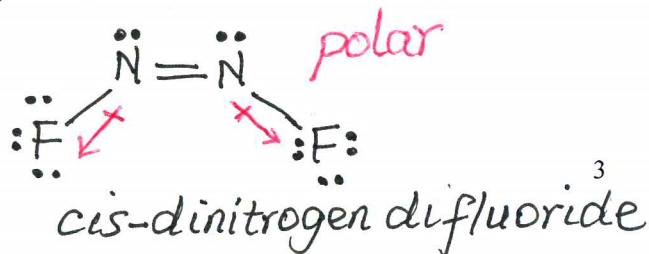 N=N polar
F F
3
cis-dinitrogen difluoride